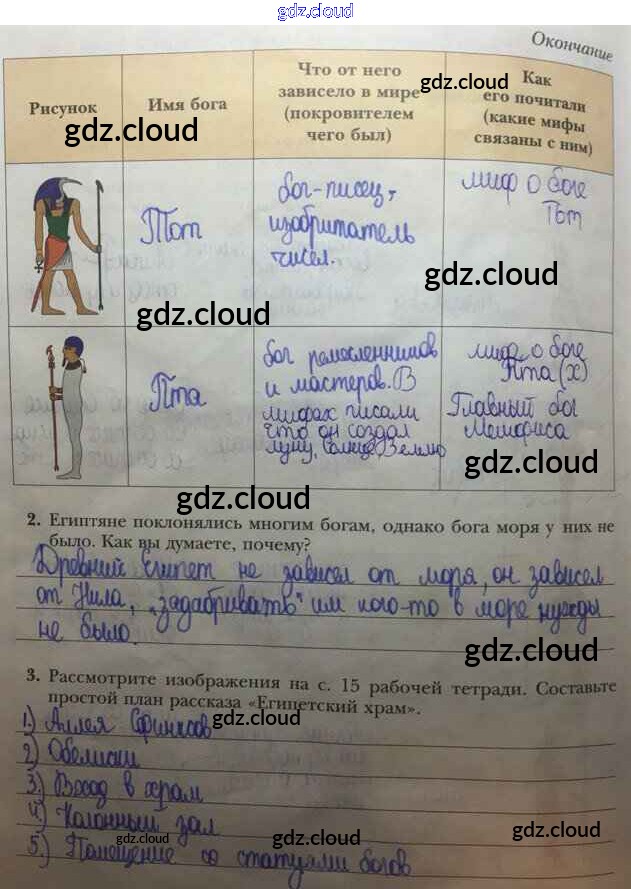 gdz.cloud
Окончание
Рисунок
Имя бога
Что от него
зависело в мире
(покровителем
чего был)
Как
его почитали
(какие мифы
связаны с ним)
gdz.cloud
gdz.cloud
Тот
бог-писец,
изобритатель
чисел.
миф о боге
Тот
gdz.cloud
gdz.cloud
Пта
бог ремесленников
и мастеров. В
мифах писали
что он создал
луну, Солнце, Землю
миф о боге
Пта (х)
Главный бог
Мемфиса
gdz.cloud
gdz.cloud
2. Египтяне поклонялись многим богам, однако бога моря у них не
было. Как вы думаете, почему?
Древний Египет не зависел от моря, он зависел
от Нила, „задабривать" им кого-то в море нужды
не было.
gdz.cloud
3. Рассмотрите изображения на с. 15 рабочей тетради. Составьте
простой план рассказа «Египетский храм».
1.) Аллея Сфинксов
gdz.cloud
2) Обелиски
3.) Вход в храм
4.) Колонный зал
5.) Помещение со статуями богов
gdz.cloud
gdz.cloud
gdz.cloud